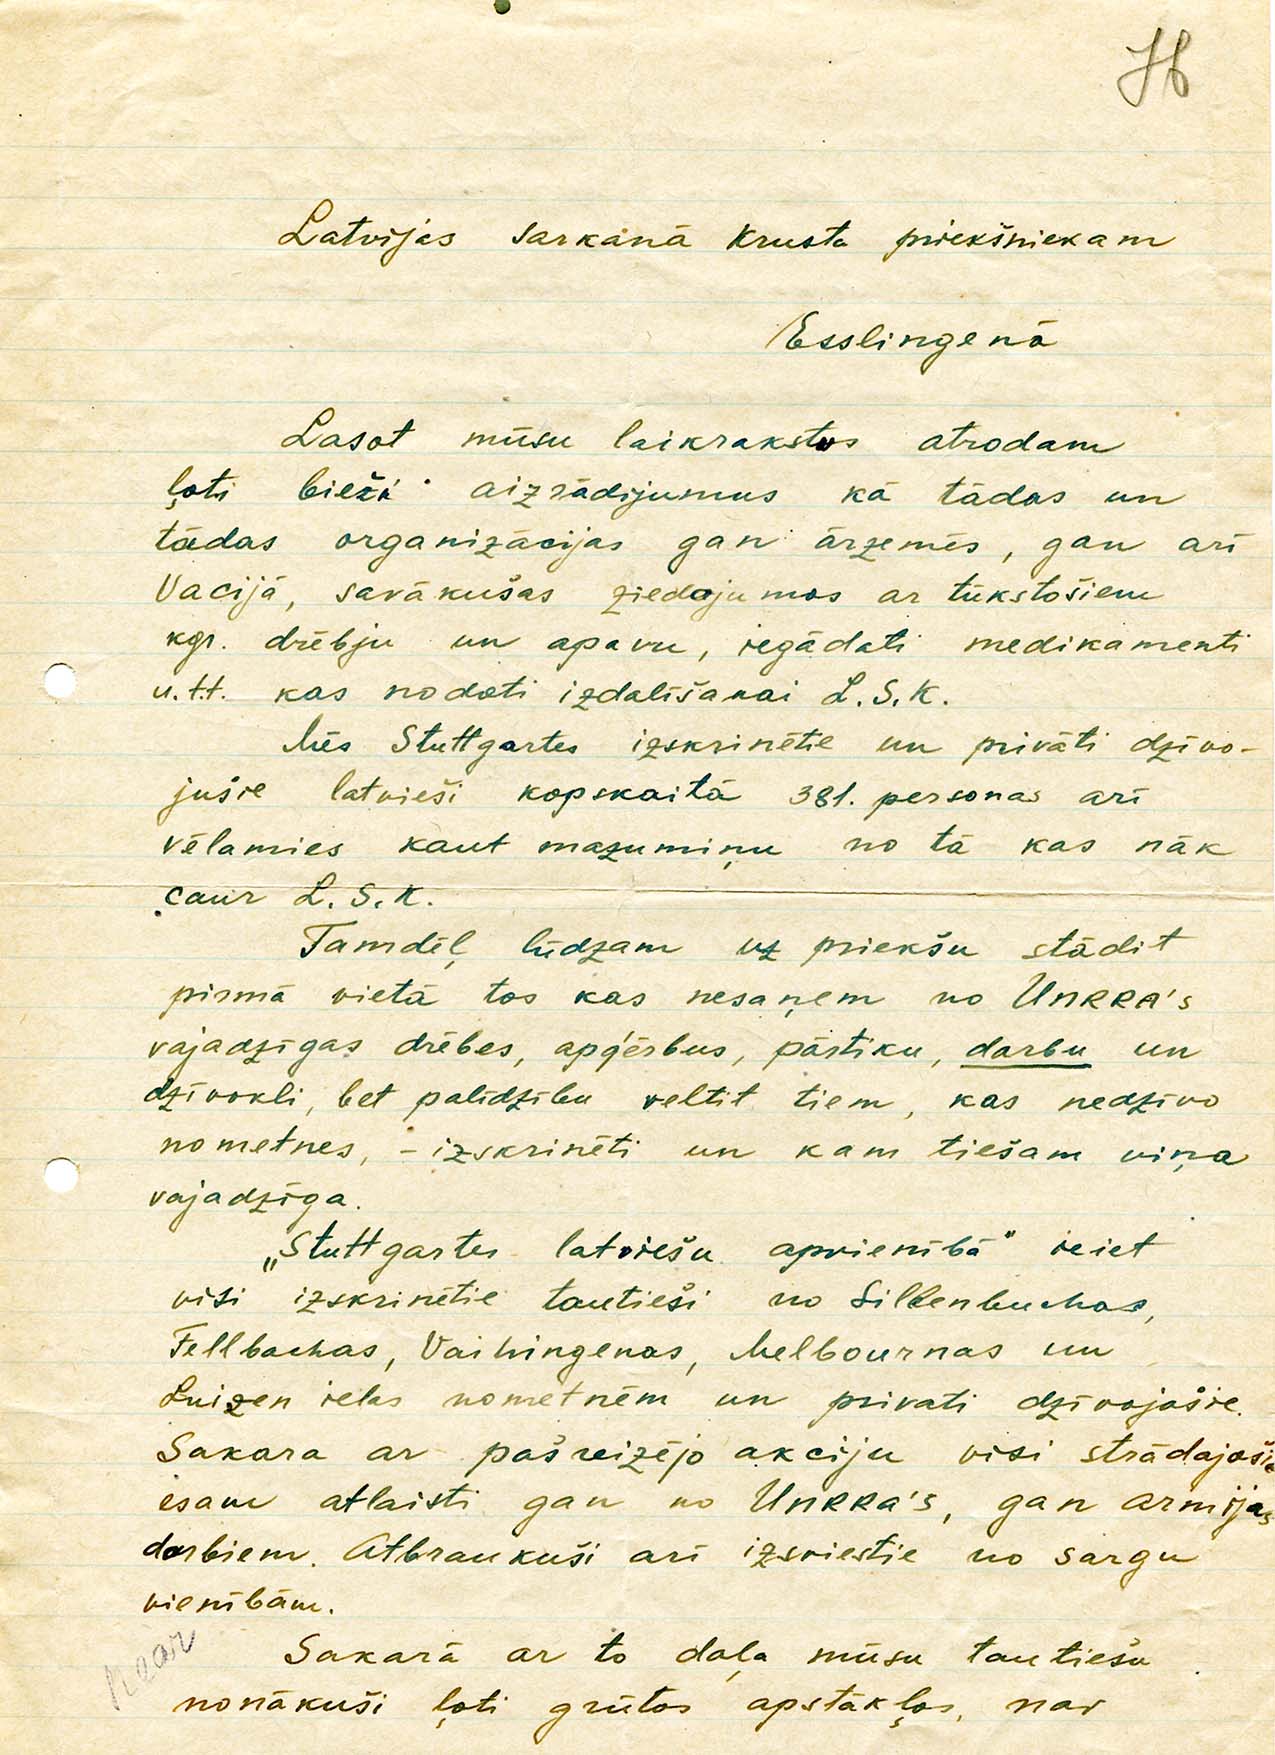 Latvijas sarkanā Krusta priekšniekam
Esslingenā
Lasot mūsu laikrakstos atrodam
ļoti bieži aizrādijumus kā tādas un
tādas organizācijas gan ārzemēs, gan arī
Vācijā, savākušas ziedojumos ar tūkstošiem
kgr. drēbju un apavu, iegādati medikamenti
u.tt. kas nodoti izdalīšanai L.S.K.
Mēs Stuttgartes izskrinētie un privāti dzīvo-
jušie latvieši kopskaitā 381. personas arī
vēlamies kaut mazumiņu no tā kas nāk
caur L.S.K.
Tamdēļ lūdzam uz priekšu stādit
pirmā vietā tos kas nesaņem no UNRRA's
vajadzīgas drēbes, apģērbus, pārtiku, darbu un
dzīvokli, bet palīdzību veltit tiem, kas nedzīvo
nometnes, - izskrinēti un kam tiešam viņa
vajadzīga.
„Stuttgartes latviešu apvienībā" ieiet
visi izskrinētie tautieši no Sillenbuchas,
Fellbachas, Vaihingenas, Melbournas un
Luizen ielas nometnēm un privati dzīvojošie.
Sakara ar pašreizējo akciju visi strādajošie
esam atlaisti gan no UNRRA's, gan armijas
darbiem. Atbraukuši arī izsviestie no sargu
vienībām.
Sakarā ar to daļa mūsu tautiešu
nonākuši ļoti grūtos apstākļos, nav